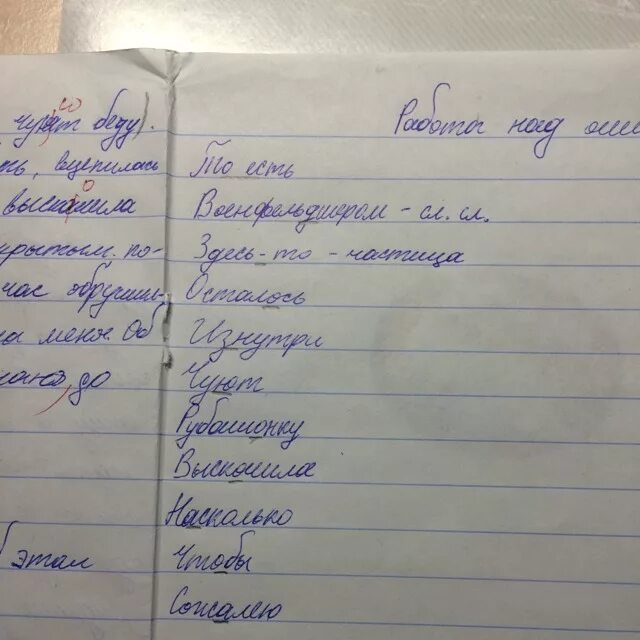 чуят беду).
ю
вцепилась
выскочила
о
крытым. по-
час обрушил
на меня. Об
до
этап
Работа над оши
То есть
Военфельдшером - сл. сл.
Здесь-то - частица
Осталось
Изнутри
Чуют
Рубашонку
Выскочила
Насколько
Чтобы
Сожалею